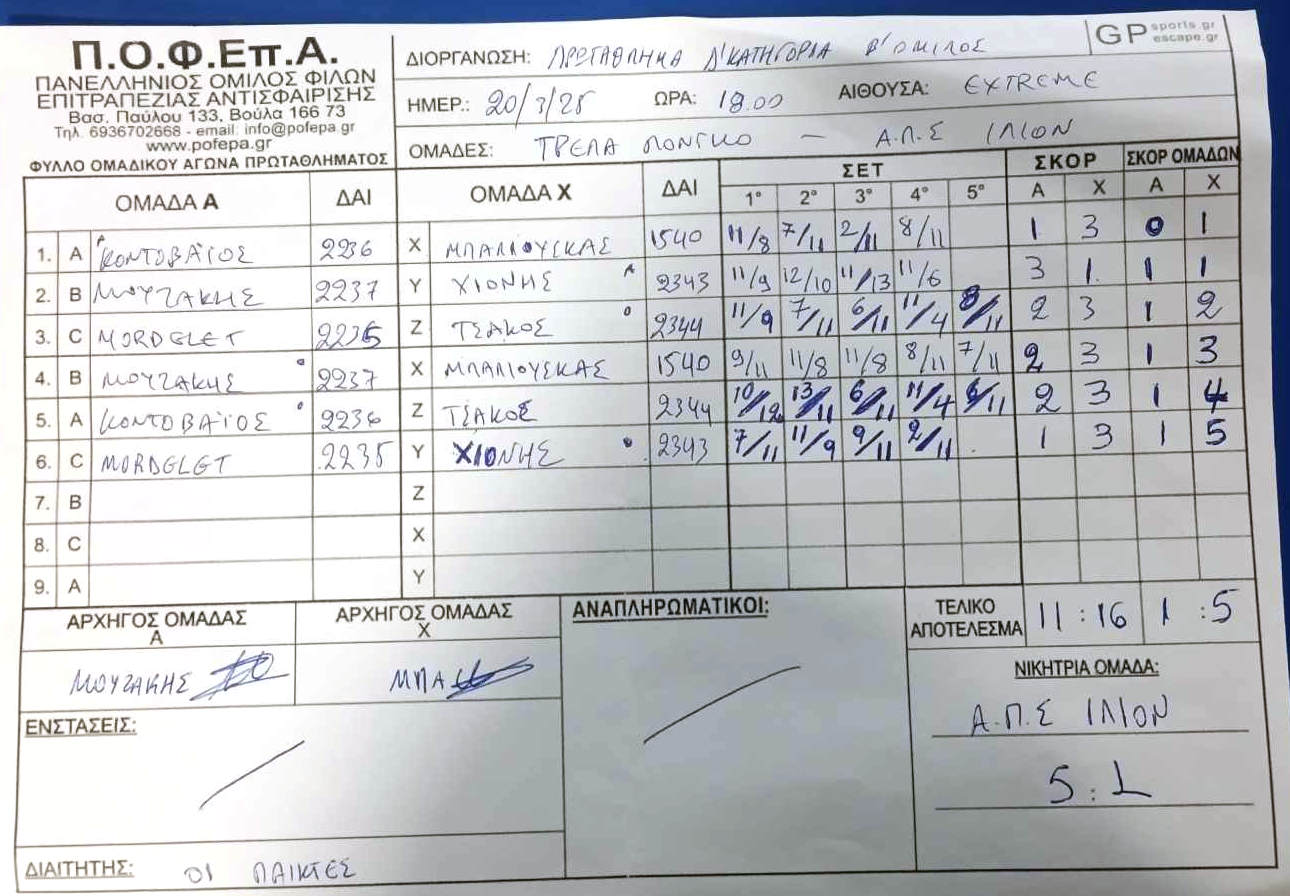 Π.Ο.Φ.Επ.Α.
ΠΑΝΕΛΛΗΝΙΟΣ ΟΜΙΛΟΣ ΦΙΛΩΝ
ΕΠΙΤΡΑΠΕΖΙΑΣ ΑΝΤΙΣΦΑΙΡΙΣΗΣ
Βασ. Παύλου 133, Βούλα 166 73
Τηλ. 6936702668 - email: info@pofepa.gr
www.pofepa.gr
ΦΥΛΛΟ ΟΜΑΔΙΚΟΥ ΑΓΩΝΑ ΠΡΩΤΑΘΛΗΜΑΤΟΣ
GP sports.gr
escape.gr
ΔΙΟΡΓΑΝΩΣΗ: ΠΡΩΤΑΘΛΗΜΑ Δ' ΚΑΤΗΓΟΡΙΑ Β' ΟΜΙΛΟΣ
ΗΜΕΡ.: 20/3/25 ΩΡΑ: 19.00 ΑΙΘΟΥΣΑ: EXTREME
ΟΜΑΔΕΣ: ΤΡΕΛΑ ΠΟΝΓΚΟ — Α.Π.Σ ΙΛΙΟΝ
ΟΜΑΔΑ Α ΔΑΙ ΟΜΑΔΑ Χ ΔΑΙ ΣΕΤ ΣΚΟΡ ΣΚΟΡ ΟΜΑΔΩΝ
1° 2° 3° 4° 5° Α Χ Α Χ
1. Α ΚΟΝΤΟΒΑΪΟΣ 2236 Χ ΜΠΑΛΙΟΥΣΚΑΣ 1540 11/8 7/11 2/11 8/11 1 3 0 1
2. Β ΜΟΥΖΑΚΗΣ 2237 Υ ΧΙΟΝΗΣ 2343 11/9 12/10 11/13 11/6 3 1 1 1
3. C MORDELET 2235 Ζ ΤΣΑΚΟΣ 2344 11/9 7/11 6/11 11/4 8/11 2 3 1 2
4. Β ΜΟΥΖΑΚΗΣ 2237 Χ ΜΠΑΛΙΟΥΣΚΑΣ 1540 9/11 11/8 11/8 8/11 7/11 2 3 1 3
5. Α ΚΟΝΤΟΒΑΪΟΣ 2236 Ζ ΤΣΑΚΟΣ 2344 10/12 13/11 6/11 11/4 6/11 2 3 1 4
6. C MORDELET 2235 Υ ΧΙΟΝΗΣ 2343 7/11 11/9 9/11 2/11 1 3 1 5
7. Β Ζ
8. C Χ
9. Α Υ
ΑΡΧΗΓΟΣ ΟΜΑΔΑΣ Α ΑΡΧΗΓΟΣ ΟΜΑΔΑΣ Χ ΑΝΑΠΛΗΡΩΜΑΤΙΚΟΙ: ΤΕΛΙΚΟ ΑΠΟΤΕΛΕΣΜΑ 11 : 16 1 : 5
ΜΟΥΖΑΚΗΣ ΜΠΑ
ΝΙΚΗΤΡΙΑ ΟΜΑΔΑ:
Α.Π.Σ ΙΛΙΟΝ
5 : 1
ΕΝΣΤΑΣΕΙΣ:
ΔΙΑΙΤΗΤΗΣ: ΟΙ ΠΑΙΚΤΕΣ